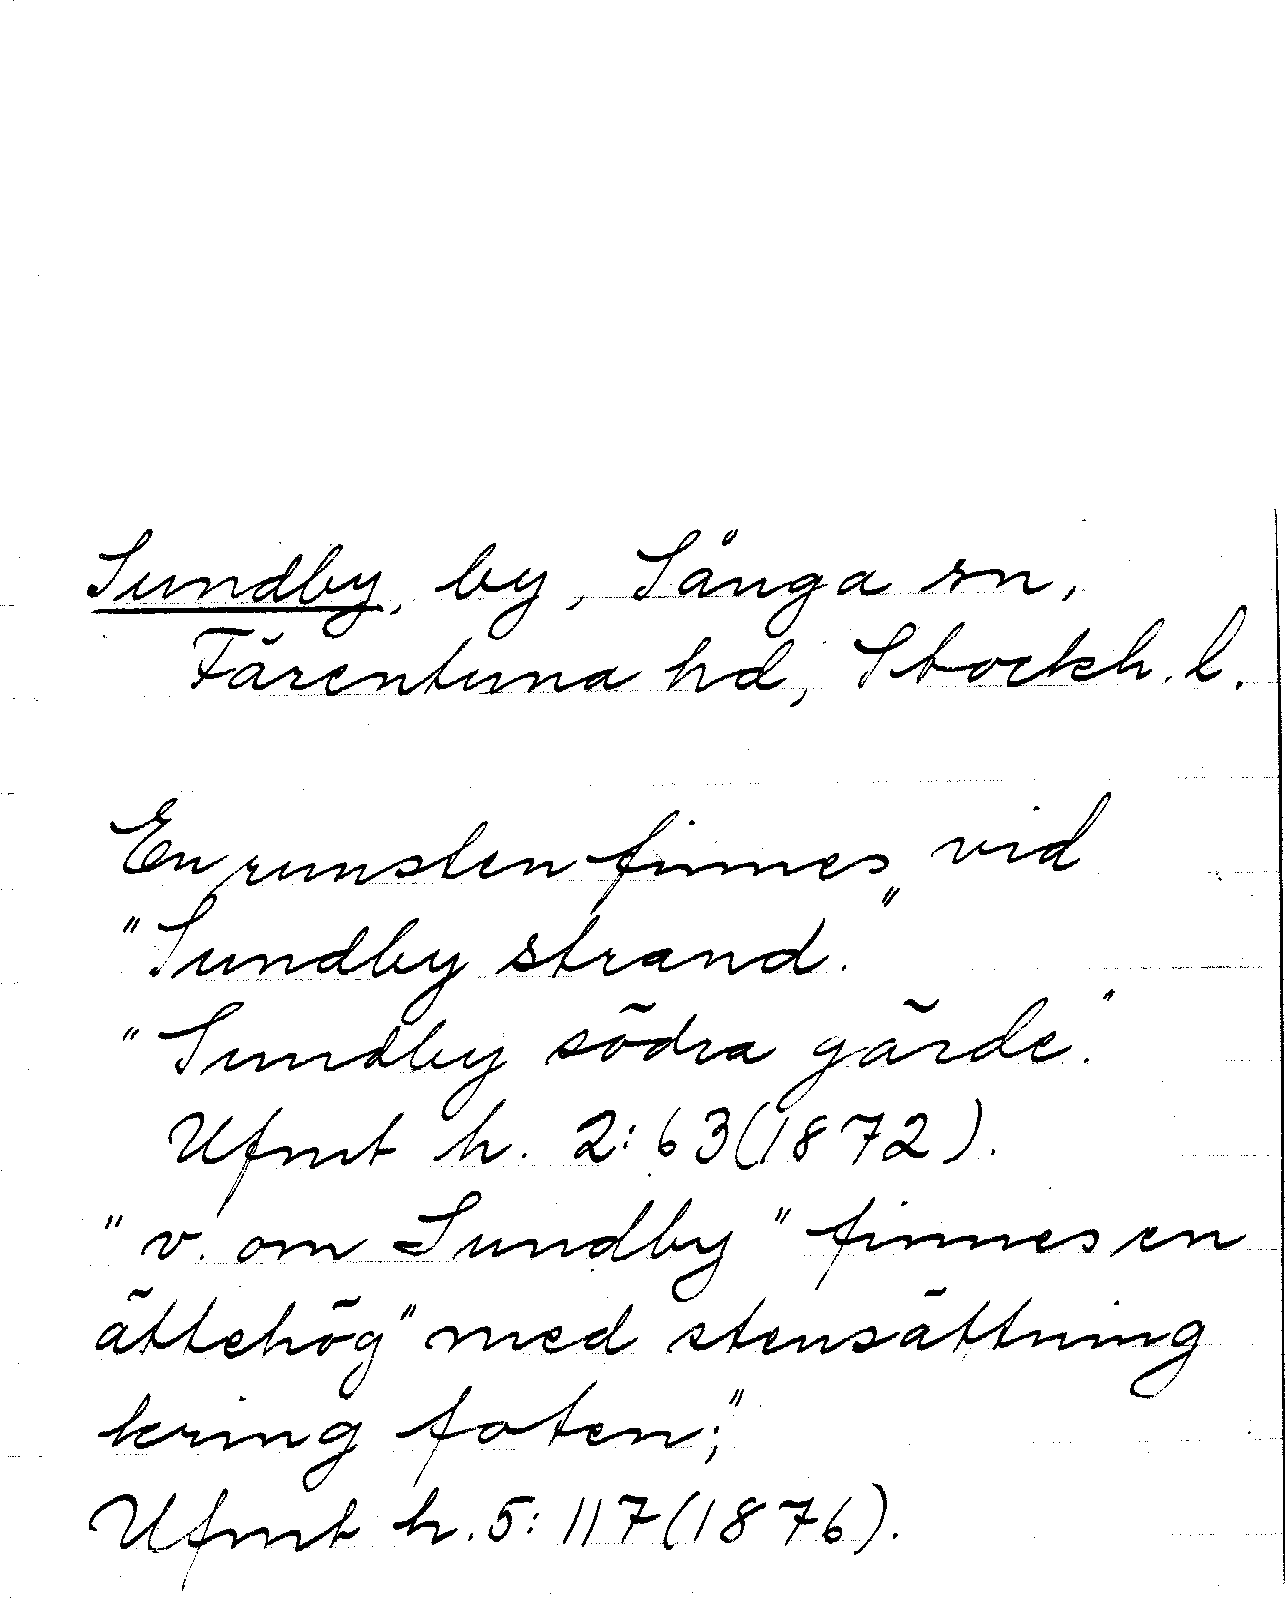 Sundby, by, Sånga sn,
Färentuna hd, Stockh. l.
En runsten finnes vid
"Sundby strand."
"Sundby södra gärde."
Ufmt h. 2: 63 (1872).
"v. om Sundby" finnes en
ättehög "med stensättning
kring foten;"
Ufmt h. 5: 117 (1876).